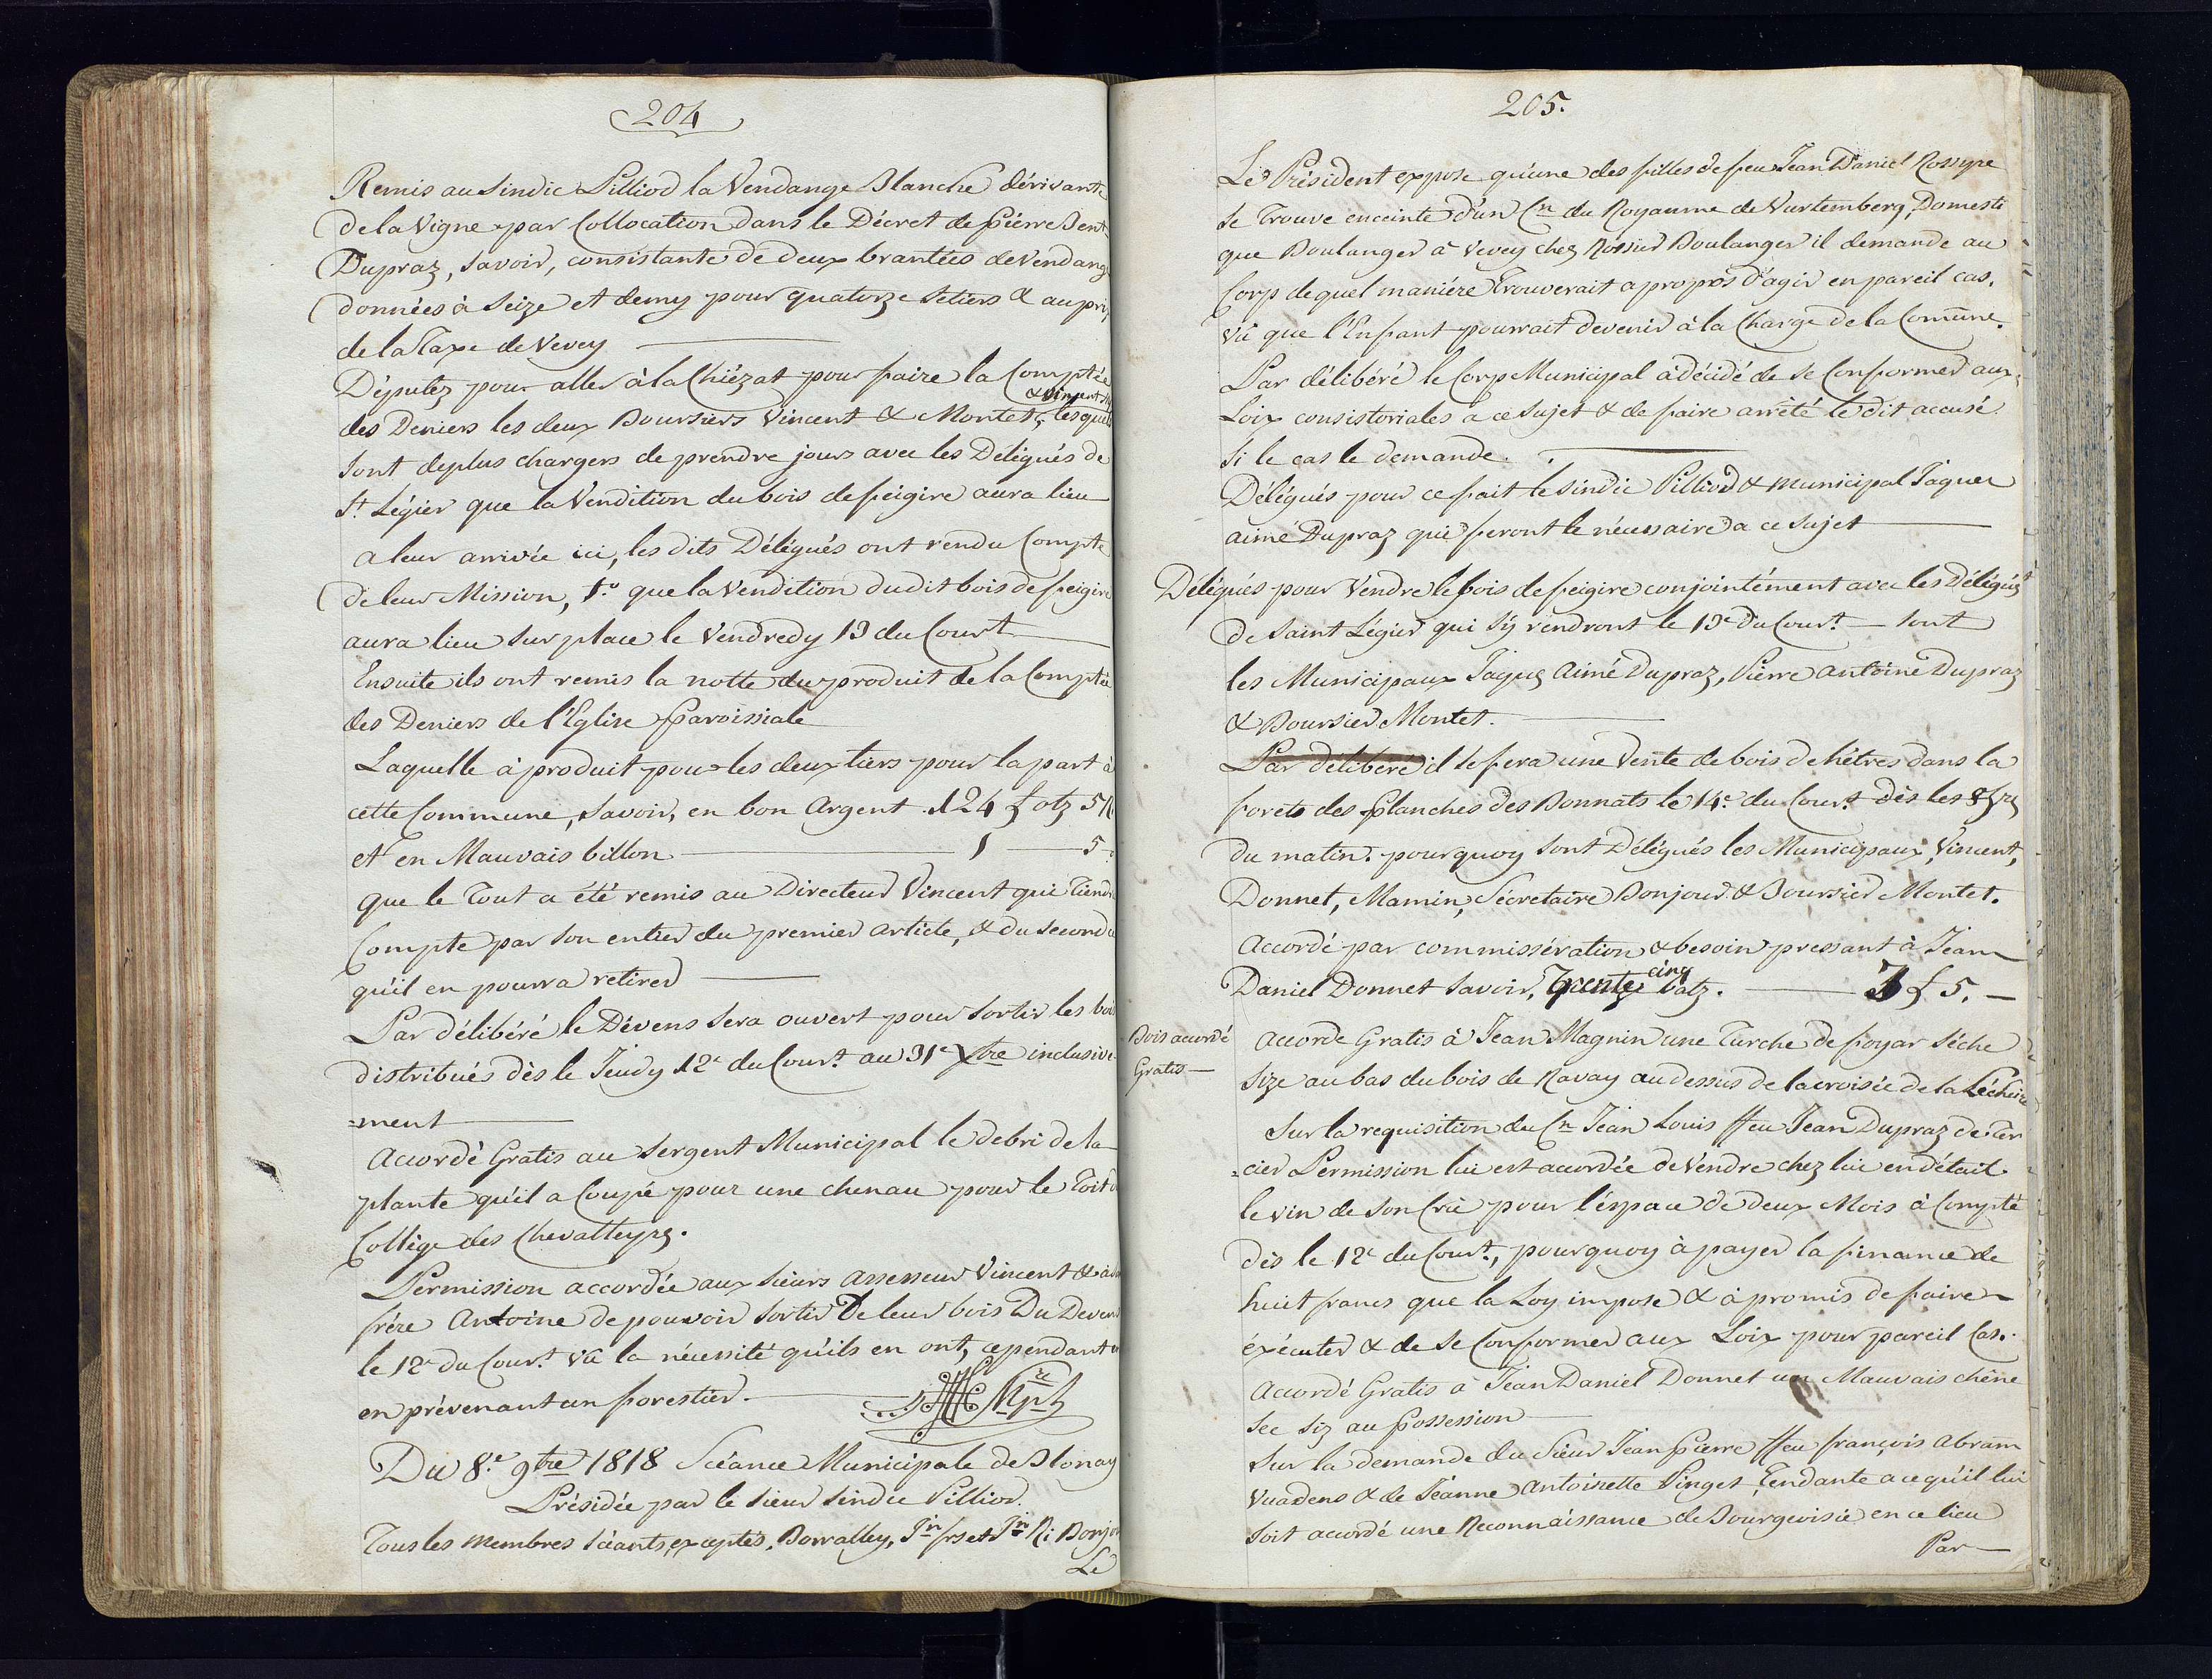 204
Remis au Sindic Pilliod la Vendange Blanche dérivante
de la Vigne par Collocation dans le Décret de Piérre Bent
Dupraz, Savoir, consistante de deux brantées de Vendange
données à Seize et demy pour quatorze Setiers & au prix
de la Taxe de Vevey
Députez pour aller à la Chiézaz pour faire la Comptée
& Vincent
des Deniers les deux Boursiers Vincent & Montet, lesquels
Sont deplus chargers de prendre jours avec les Déligués de
St. Légier que la Vendition du bois de feigire aura lieu
a leur arrivée ici, les dits Délégués ont rendu Compte
de leur Mission, 1.o que la Vendition dudit bois de feigire
aura lieu Sur place le Vendredy 13 du Court
Ensuite ils ont remis la notte du produit de la Comptée
des Deniers de l'Eglise Paroissiale
Laquelle à produit pour les deux tiers pour la part à
cette Commune, Savoir, en bon Argent . 124 f btz 5
et en Mauvais billon 1 5
que le Tout a été remis au Directeur Vincent qui Tiendr
Compte par Son entier du premier article, & du Second
qu'il en pourra retirer
Par délibéré le Dévens Sera ouvert pour Sortir les bois
distribués dès le Jeudy 12e du Court. au 31e Xbre inclusive
=ment
Accordé Gratis au Sergent Municipal le debri de la
plante qu'il a Coupé pour une chenau pour le Toit d
Collège des Chevalleyrs.
Permission accordée aux Sieurs Assesseur Vincent & à son
frére Antoine de pouvoir Sortir De leur bois Du Devens
le 12e du Court. Vû la nécessité qu'ils en ont, cependant
en prévenant un forestier.
Du 8.e 9bre 1818 Scéance Municipale de Blonay
Présidée par le Sieur Sindic Pilliod.
Tous les Membres Séants, exceptés, Borralley, Jn frs et Jn Ri Bonjour
Le
205.
Le Président expose qu'une des filles de feu Jean Daniel Rossyre
Se Trouve enceinte d'un Cn du Royaume de Vurtemberg, Domesti
que Boulanger à Vevey chez Rossier Boulanger il demande au
Corp de quel maniére Trouverait apropos d'agir en pareil cas,
vû que l'Enfant pourrait devenir à la Charge de la Comune.
Par délibéré le Corp Municipal à décidé de Se Conformer aux
Loix consistoriales à ce Sujet & de faire arrêté le dit accusé
Si le cas le demande.
Délégués pour ce fait le Sindic Pilliod & municipal Jâques
aimé Dupraz qui feront le nécessaire a ce Sujet
Délégués pour Vendre le bois de feigire conjointément avec les Délégués
de Saint Légier qui S'y rendront le 13e Du Court. Sont
les Municipaux Jaqus Aimé Dupraz, Piérre Antoine Dupraz
& Boursier Montet.
Par délibéré il Se fera une Vente de bois de hêtres dans la
forets des Planches des Bonnats le 14e. du Court. Dès les 8 hrs
du matin. pourquoy Sont Délégués les Municipaux, Vincent,
Donnet, Mamin, Sécretaire Bonjour & Boursier Montet.
Accordé par commissération & besoin pressant à Jean
cinq
Daniel Donnet Savoir, Trente batz. 3 f 5. —
Bois accordé
Gratis—
Accordé Gratis à Jean Magnin une Turche de foyar Séche
Size au bas du bois de Ravay au dessus de la croisée de la Léchère
Sur la requisition du Cn Jean Louis ffeu Jean Dupraz de Ter
=cier Permission lui est accordée de Vendre chez lui en détail
le vin de Son Crû pour l'éspace de deux Mois à Compté
dès le 12e du Court., pourquoy à payer la finance de
huit francs que la Loy impose & à promis de faire
éxécuter & de Se Conformer aux Loix pour pareil Cas.
Accordé Gratis à Jean Daniel Donnet un Mauvais chêne
Sec Siz au Possession
Sur la demande du Sieur Jean Pierre ffeu françois Abram
Vuadens & de Jeanne Antoinette Pinget Tendante a ce qu'il lui
Soit accordé une Reconnaissance de Bourgeoisie en ce lieu
Par